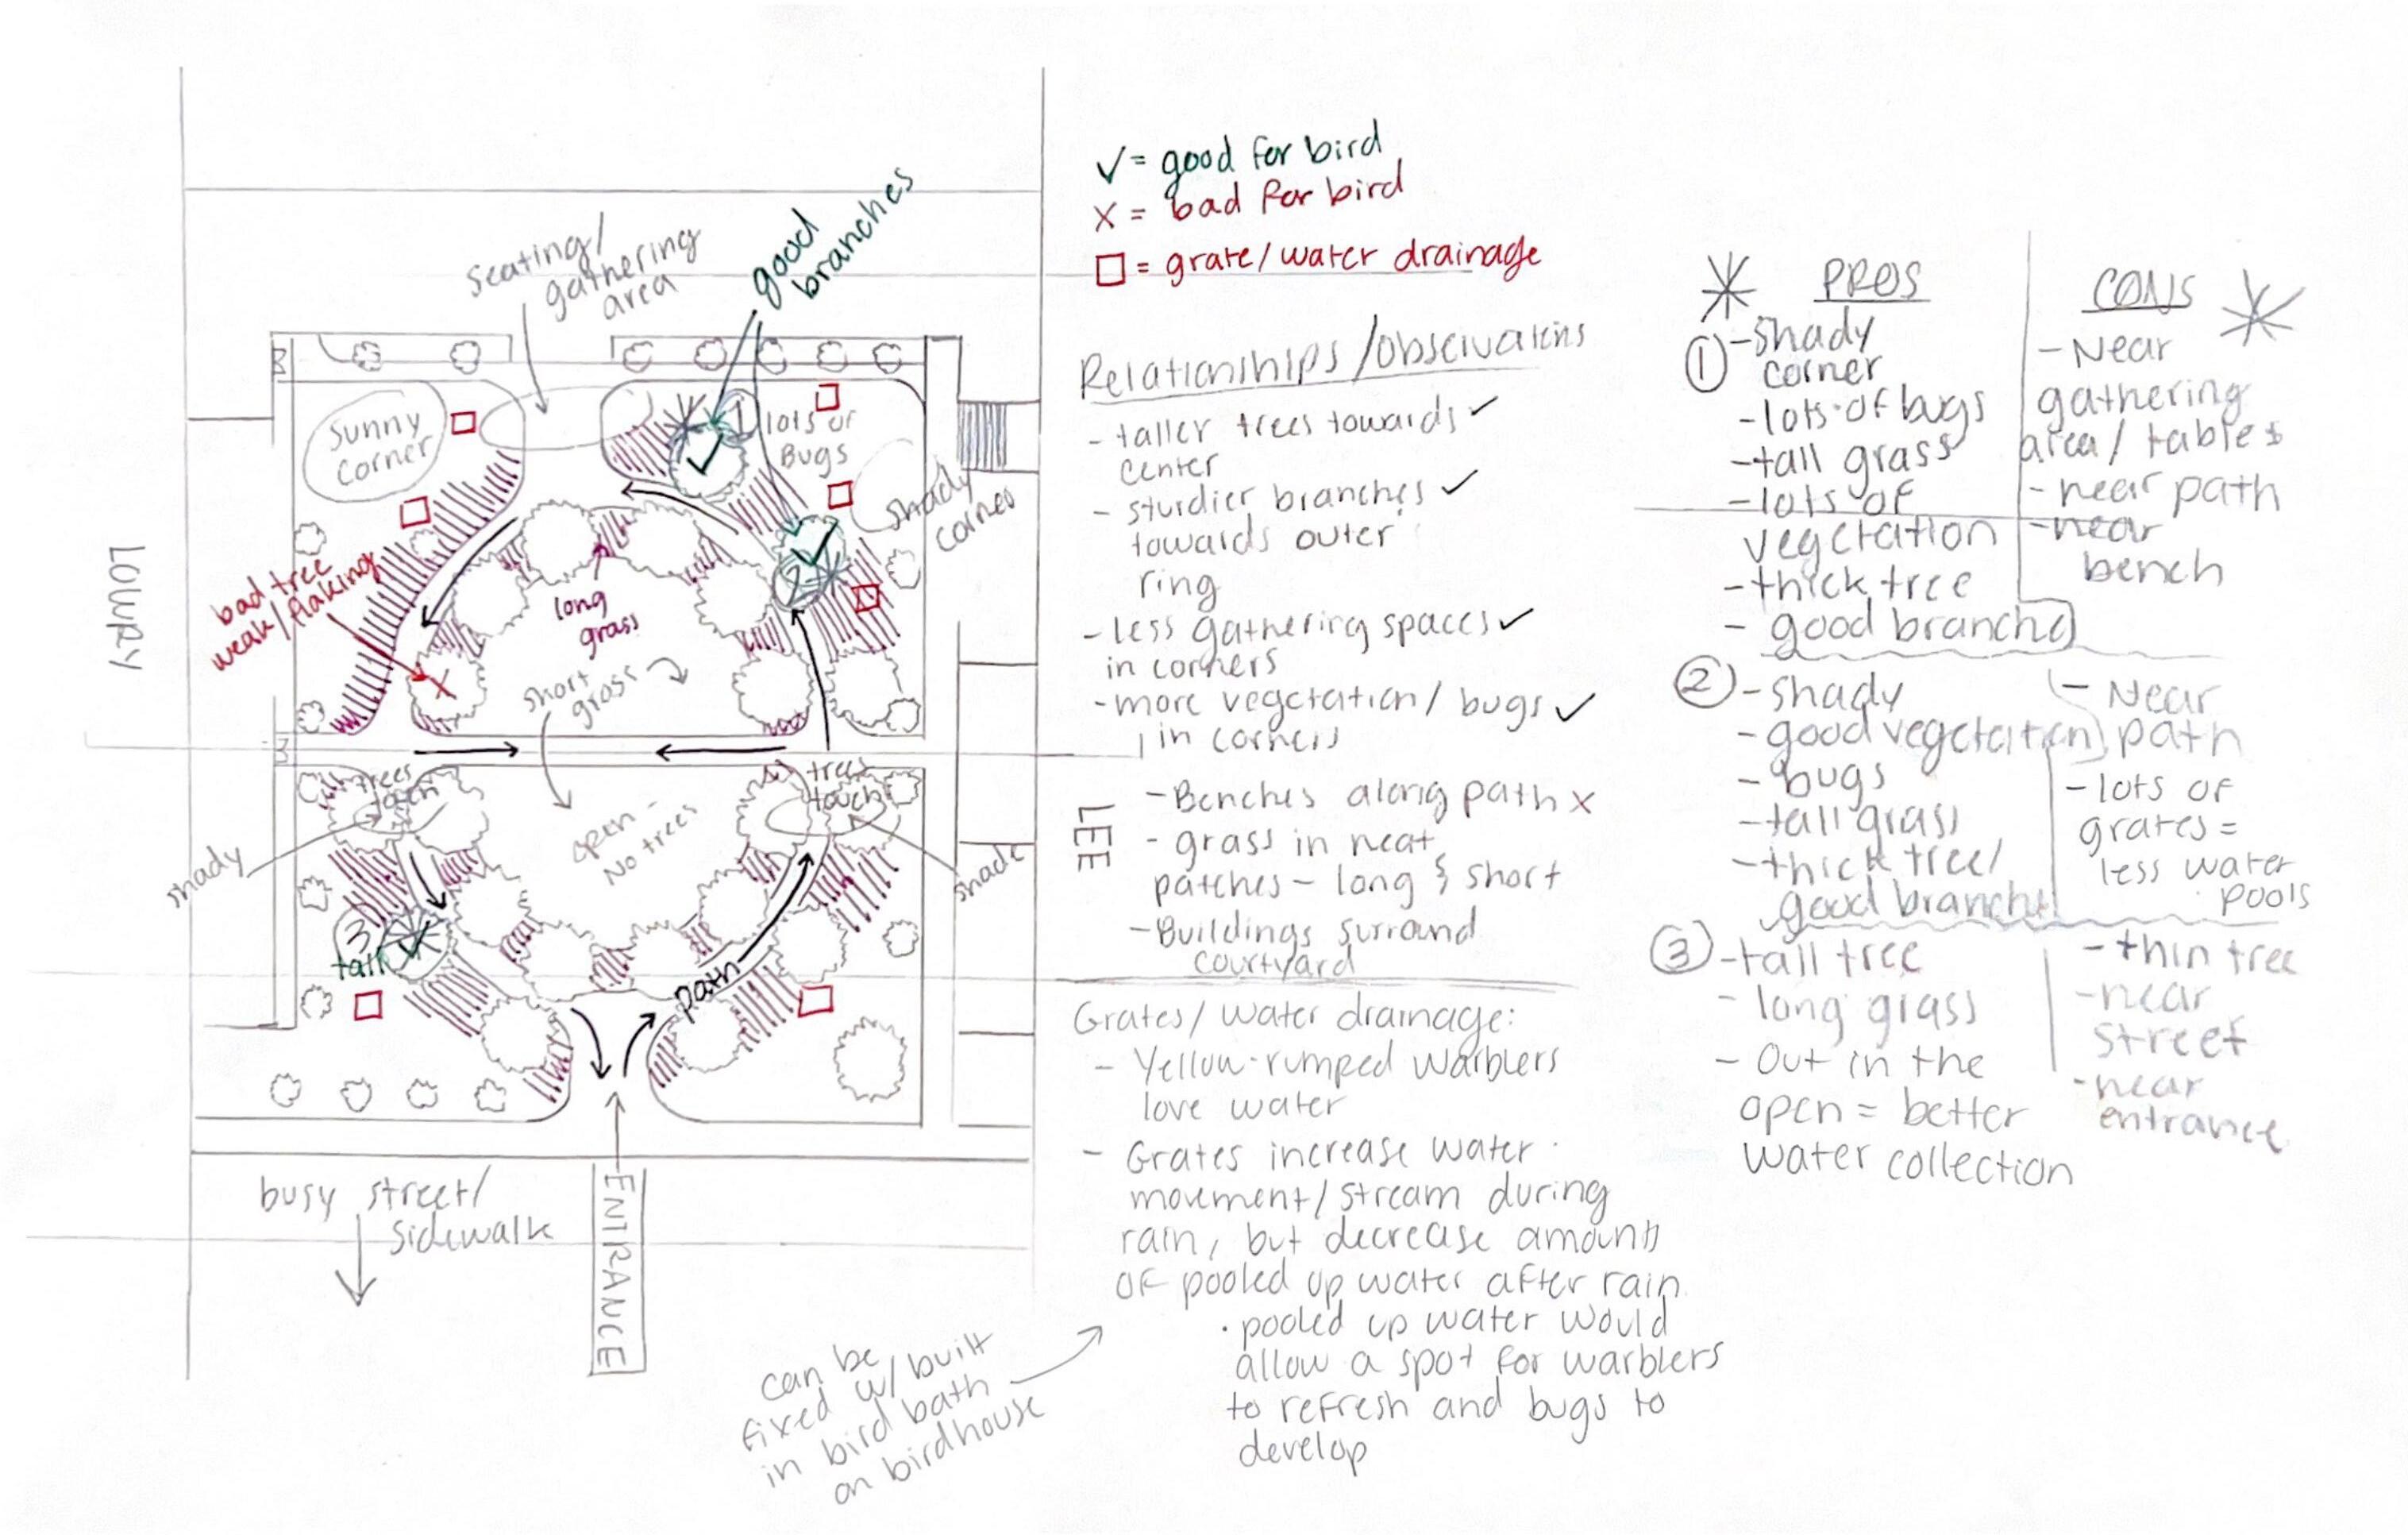 seating/
gathering
area
good
branches
sunny
corner
1
lots of
BUGS
shady
corner
B
LOWRY
bad tree
weak/flaking
X
long
grass
2
short
grass
B
trees
touch
trees
touch
shady
open -
No trees
shade
3
tall
path
busy street/
sidewalk
ENTRANCE
✓ = good for bird
X = bad for bird
□ = grate/water drainage
Relationships/observations
- taller trees towards ✓
center
- sturdier branches ✓
towards outer
ring
- less gathering spaces ✓
in corners
- more vegetation/ bugs ✓
in corners
- Benches along path x
LEE
- grass in neat
patches - long & short
- Buildings surround
courtyard
Grates/ water drainage:
- Yellow-rumped warblers
love water
- Grates increase water
movement/stream during
rain, but decrease amount
of pooled up water after rain
· pooled up water would
allow a spot for warblers
to refresh and bugs to
develop
can be
fixed w/ built
in bird bath
on birdhouse
PROS
① - shady
corner
- lots of bugs
- tall grass
- lots of
vegetation
- thick tree
- good branch
CONS
- Near
gathering
area/tables
- near path
- near
bench
② - shady
- good vegetation
- bugs
- tall grass
- thick tree/
good branch
- Near
path
- lots of
grates =
less water
pools
③ - tall tree
- long grass
- Out in the
open = better
water collection
- thin tree
- near
street
- near
entrance